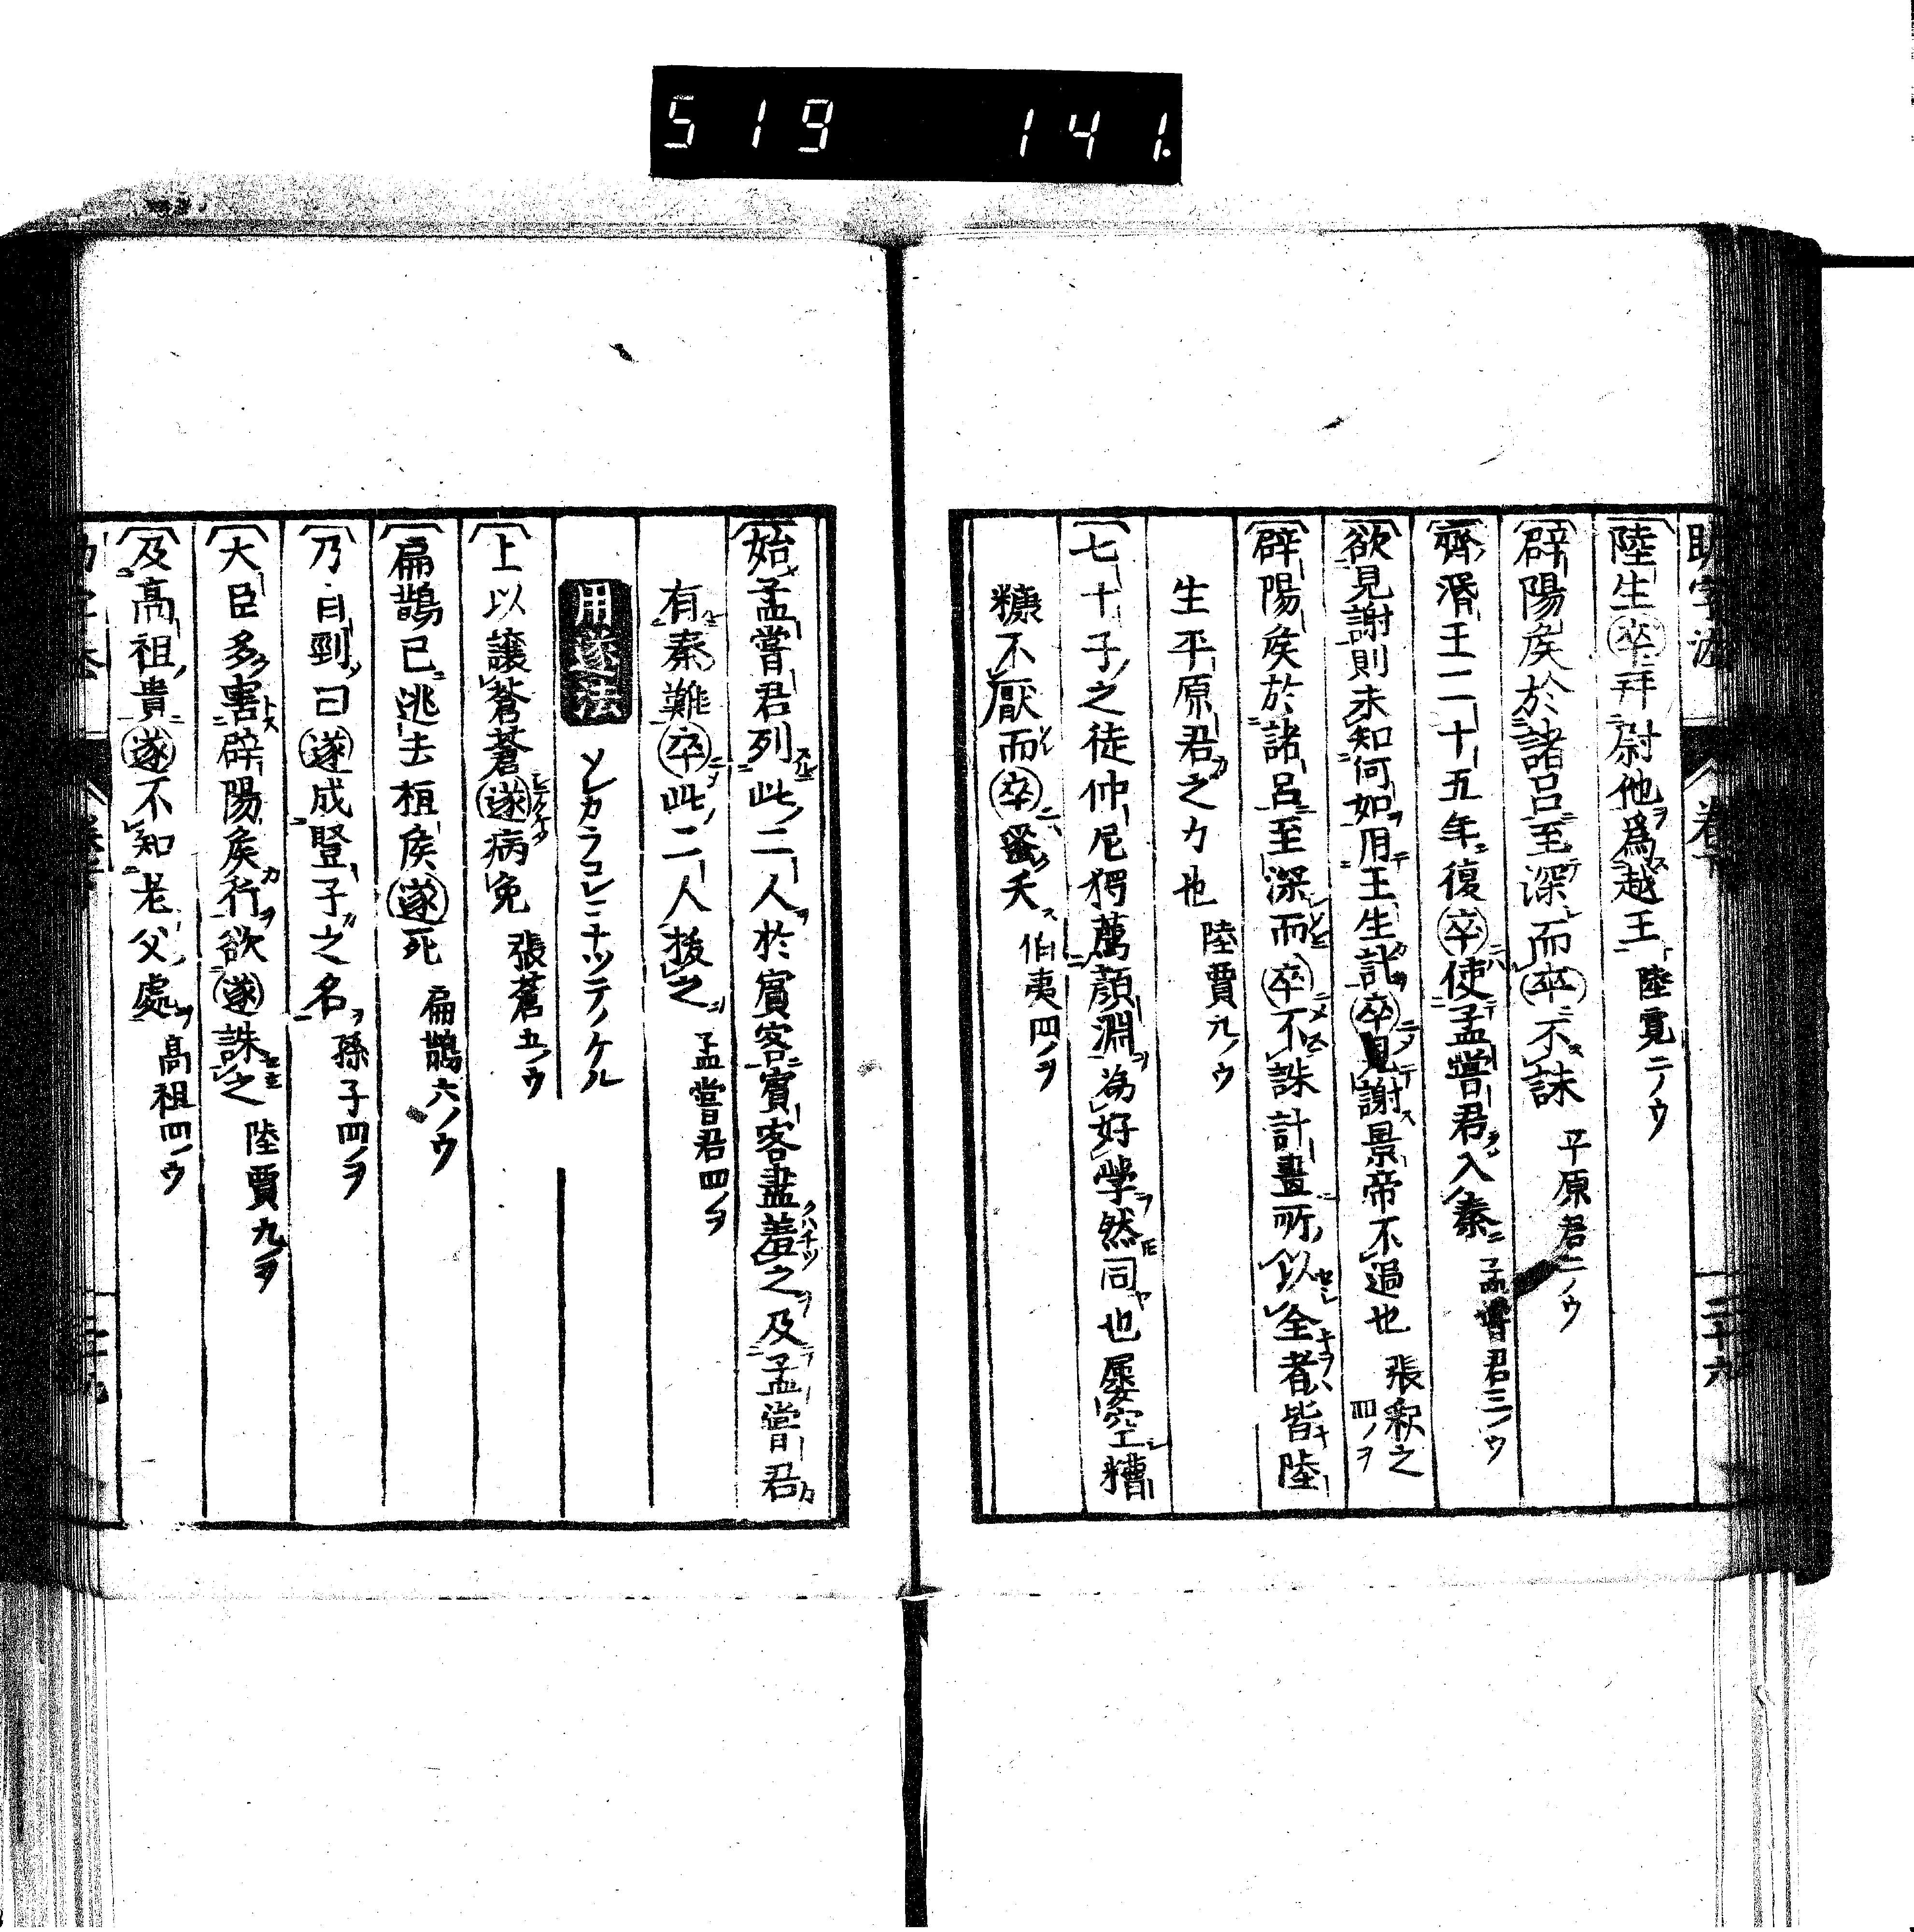 519 141.
陸生卒拜尉他爲越王 陸賈二ノウ
辟陽矦於諸呂至深而卒不誅 平原君二ノウ
齊湣王二十五年復卒使孟嘗君入秦 孟嘗君三ノウ
欲見謝則未知何如用王生計卒見謝景帝不過也 張釈之四ノヲ
辟陽矦於諸呂至深而卒不誅計畫所以全者皆陸
生平原君之力也 陸賈九ノウ
七十子之徒仲尼獨薦顔淵爲好學然同也屡空糟
糠不厭而卒蚤夭 伯夷四ノヲ
始孟嘗君列此二人於賓客賓客盡羞之及孟嘗君
有秦難卒此二人抜之 孟嘗君四ノヲ
用遂法 ソレカラコレニナツテノケル
上以讓蒼蒼遂病免 張蒼五ノウ
扁鵲已逃去桓矦遂死 扁鵲六ノウ
乃自剄曰遂成豎子之名 孫子四ノヲ
大臣多害辟陽矦行欲遂誅之 陸賈九ノヲ
及高祖貴遂不知老父處 高祖四ノウ